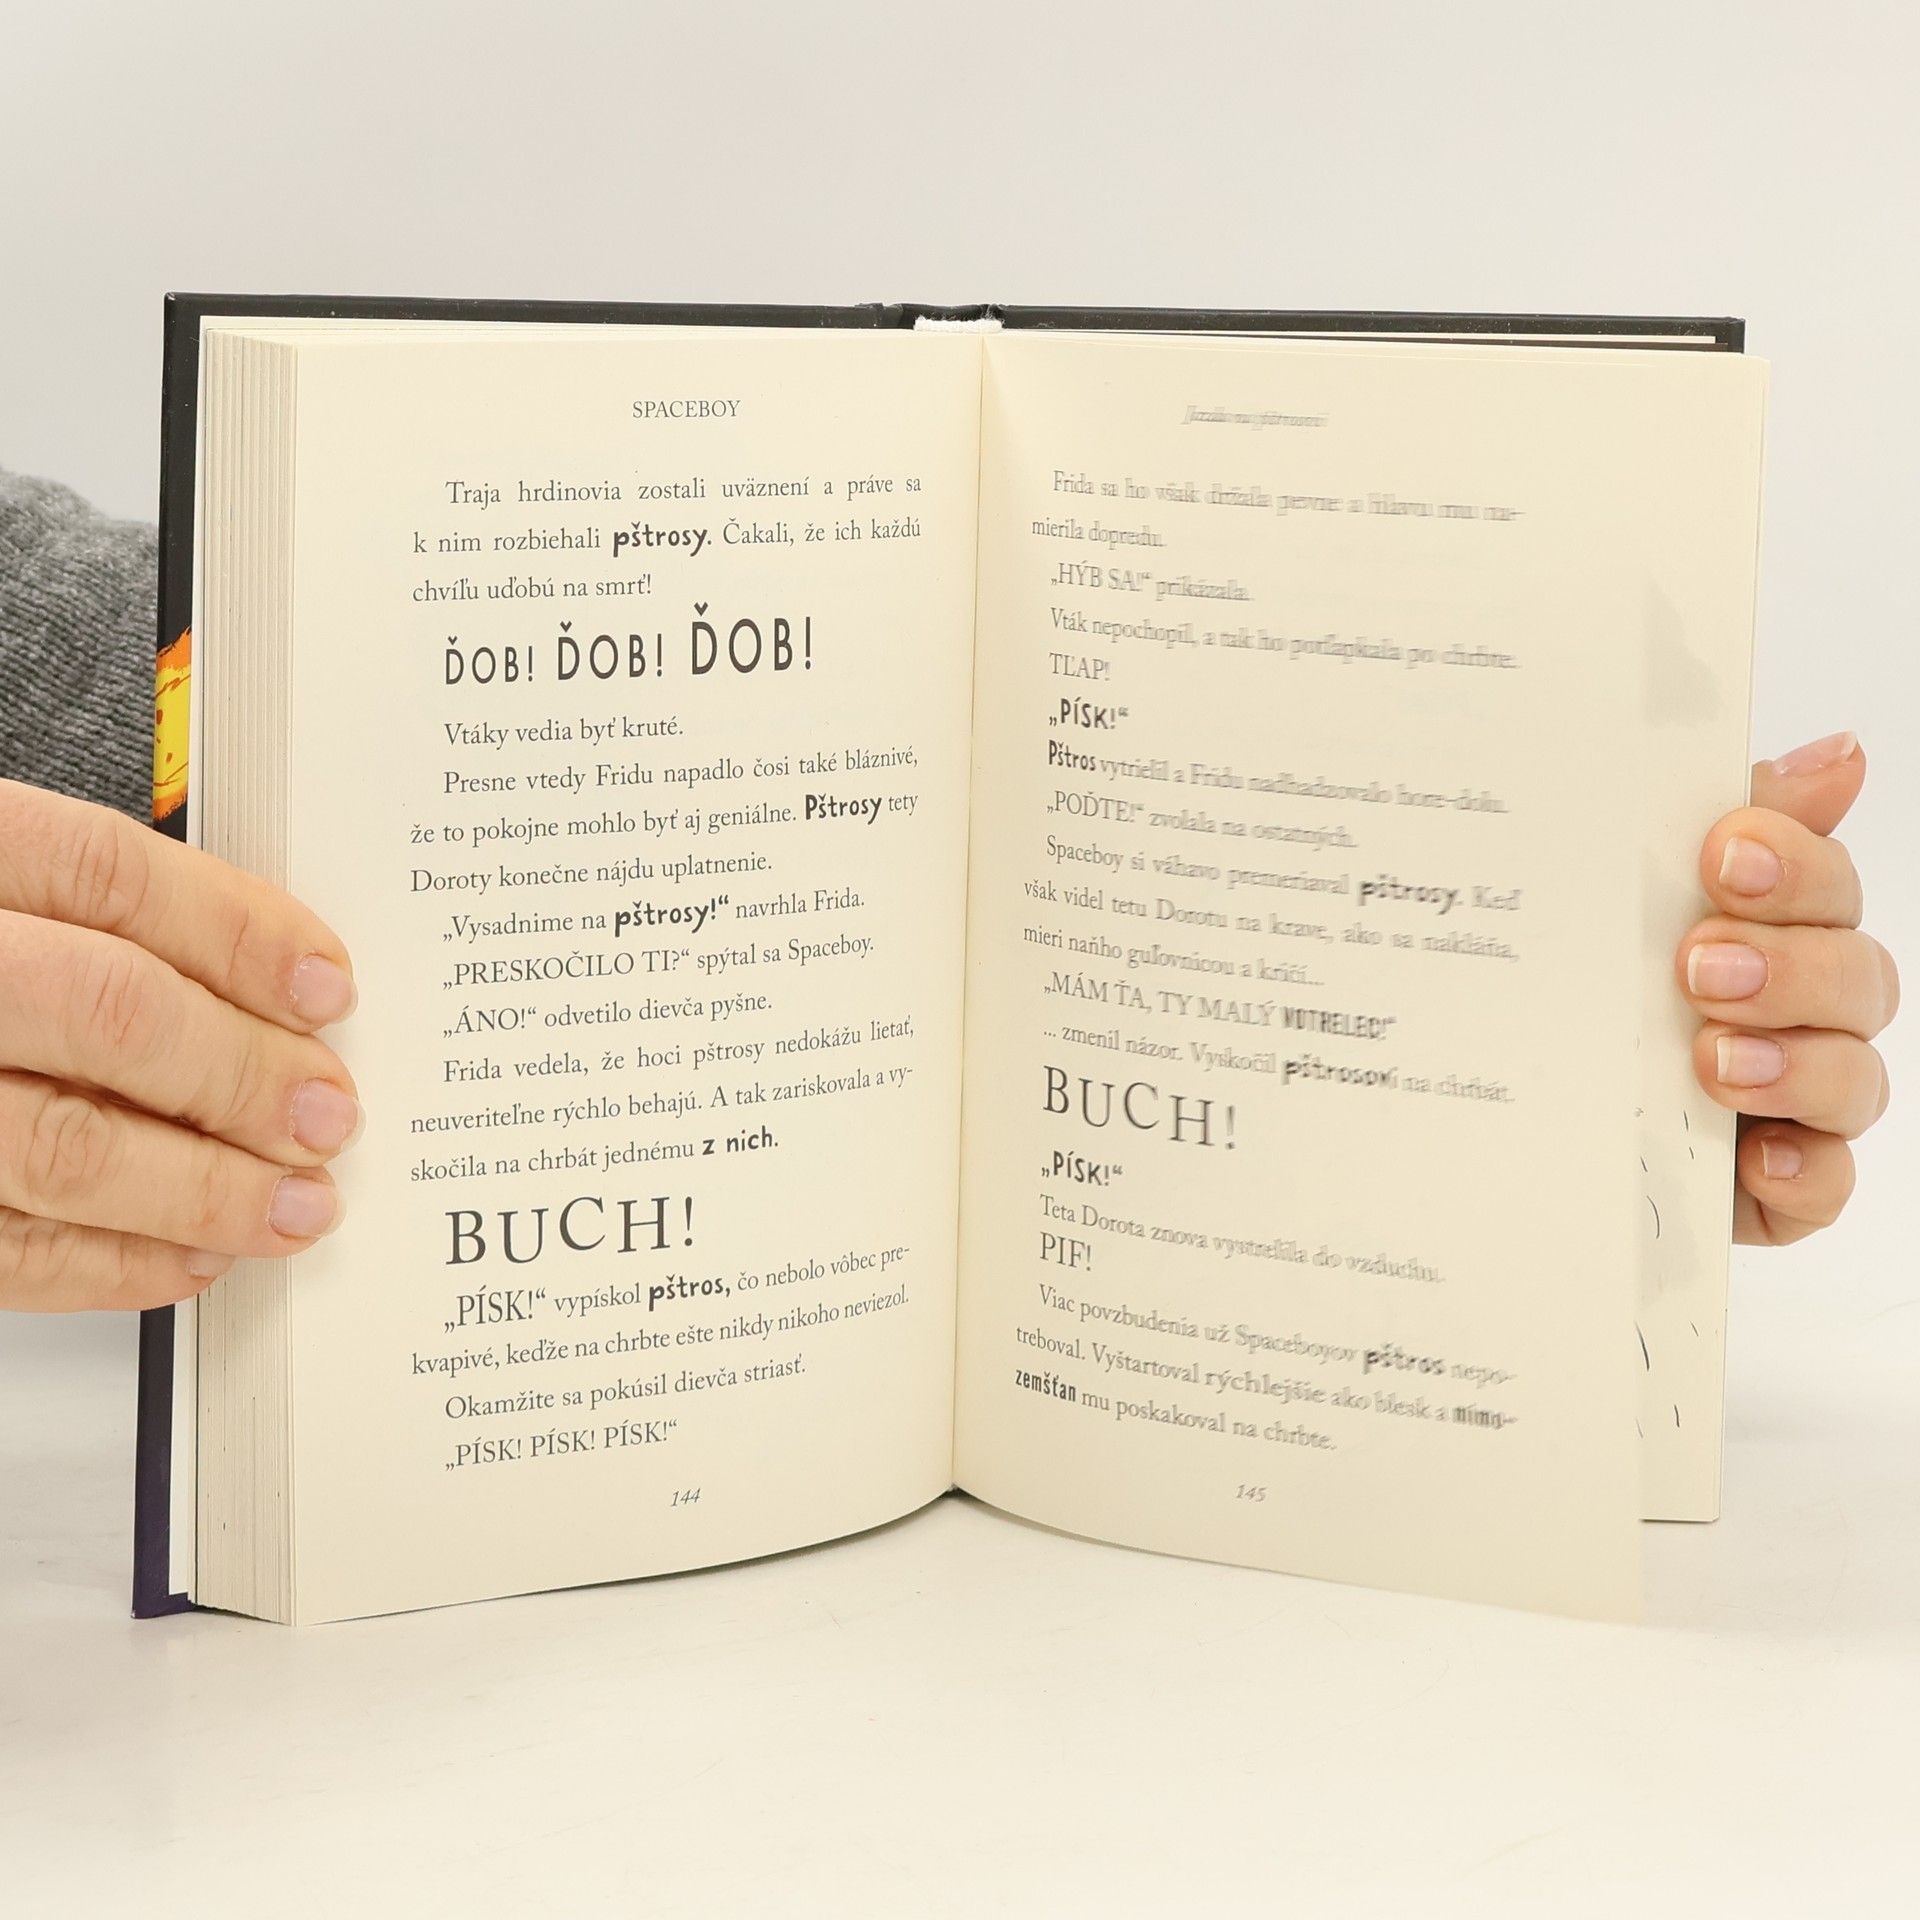 SPACEBOY
Traja hrdinovia zostali uväznení a práve sa
k nim rozbiehali pštrosy. Čakali, že ich každú
chvíľu uďobú na smrť!
ĎOB! ĎOB! ĎOB!
Vtáky vedia byť kruté.
Presne vtedy Fridu napadlo čosi také bláznivé,
že to pokojne mohlo byť aj geniálne. Pštrosy tety
Doroty konečne nájdu uplatnenie.
„Vysadnime na pštrosy!“ navrhla Frida.
„PRESKOČILO TI?“ spýtal sa Spaceboy.
„ÁNO!“ odvetilo dievča pyšne.
Frida vedela, že hoci pštrosy nedokážu lietať,
neuveriteľne rýchlo behajú. A tak zariskovala a vy-
skočila na chrbát jednému z nich.
BUCH!
„PÍSK!“ vypískol pštros, čo nebolo vôbec pre-
kvapivé, keďže na chrbte ešte nikdy nikoho neviezol.
Okamžite sa pokúsil dievča striasť.
„PÍSK! PÍSK! PÍSK!“
144
Frida sa ho však držala pevne a hlavu mu na-
mierila dopredu.
„HÝB SA!“ prikázala.
Vták nepochopil, a tak ho potľapkala po chrbte.
TĽAP!
„PÍSK!“
Pštros vytrielil a Fridu nadhadzovalo hore-dolu.
„POĎTE!“ zvolala na ostatných.
Spaceboy si váhavo premeriaval pštrosy. Keď
však videl tetu Dorotu na krave, ako sa nakláňa,
mieri naňho guľovnicou a kričí...
„MÁM ŤA, TY MALÝ VOTRELEC!“
... zmenil názor. Vyskočil pštrosovi na chrbát.
BUCH!
„PÍSK!“
Teta Dorota znova vystrelila do vzduchu.
PIF!
Viac povzbudenia už Spaceboyov pštros nepo-
treboval. Vyštartoval rýchlejšie ako blesk a mimo-
zemšťan mu poskakoval na chrbte.
145